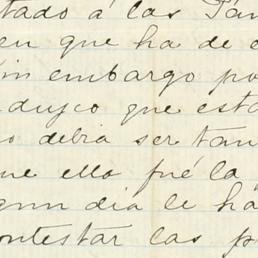 tado á las Pam
en que ha de e
in embargo po
dujo que esta
o debia ser tan
ue ello fué la
gun dia le ha
ontestar las p